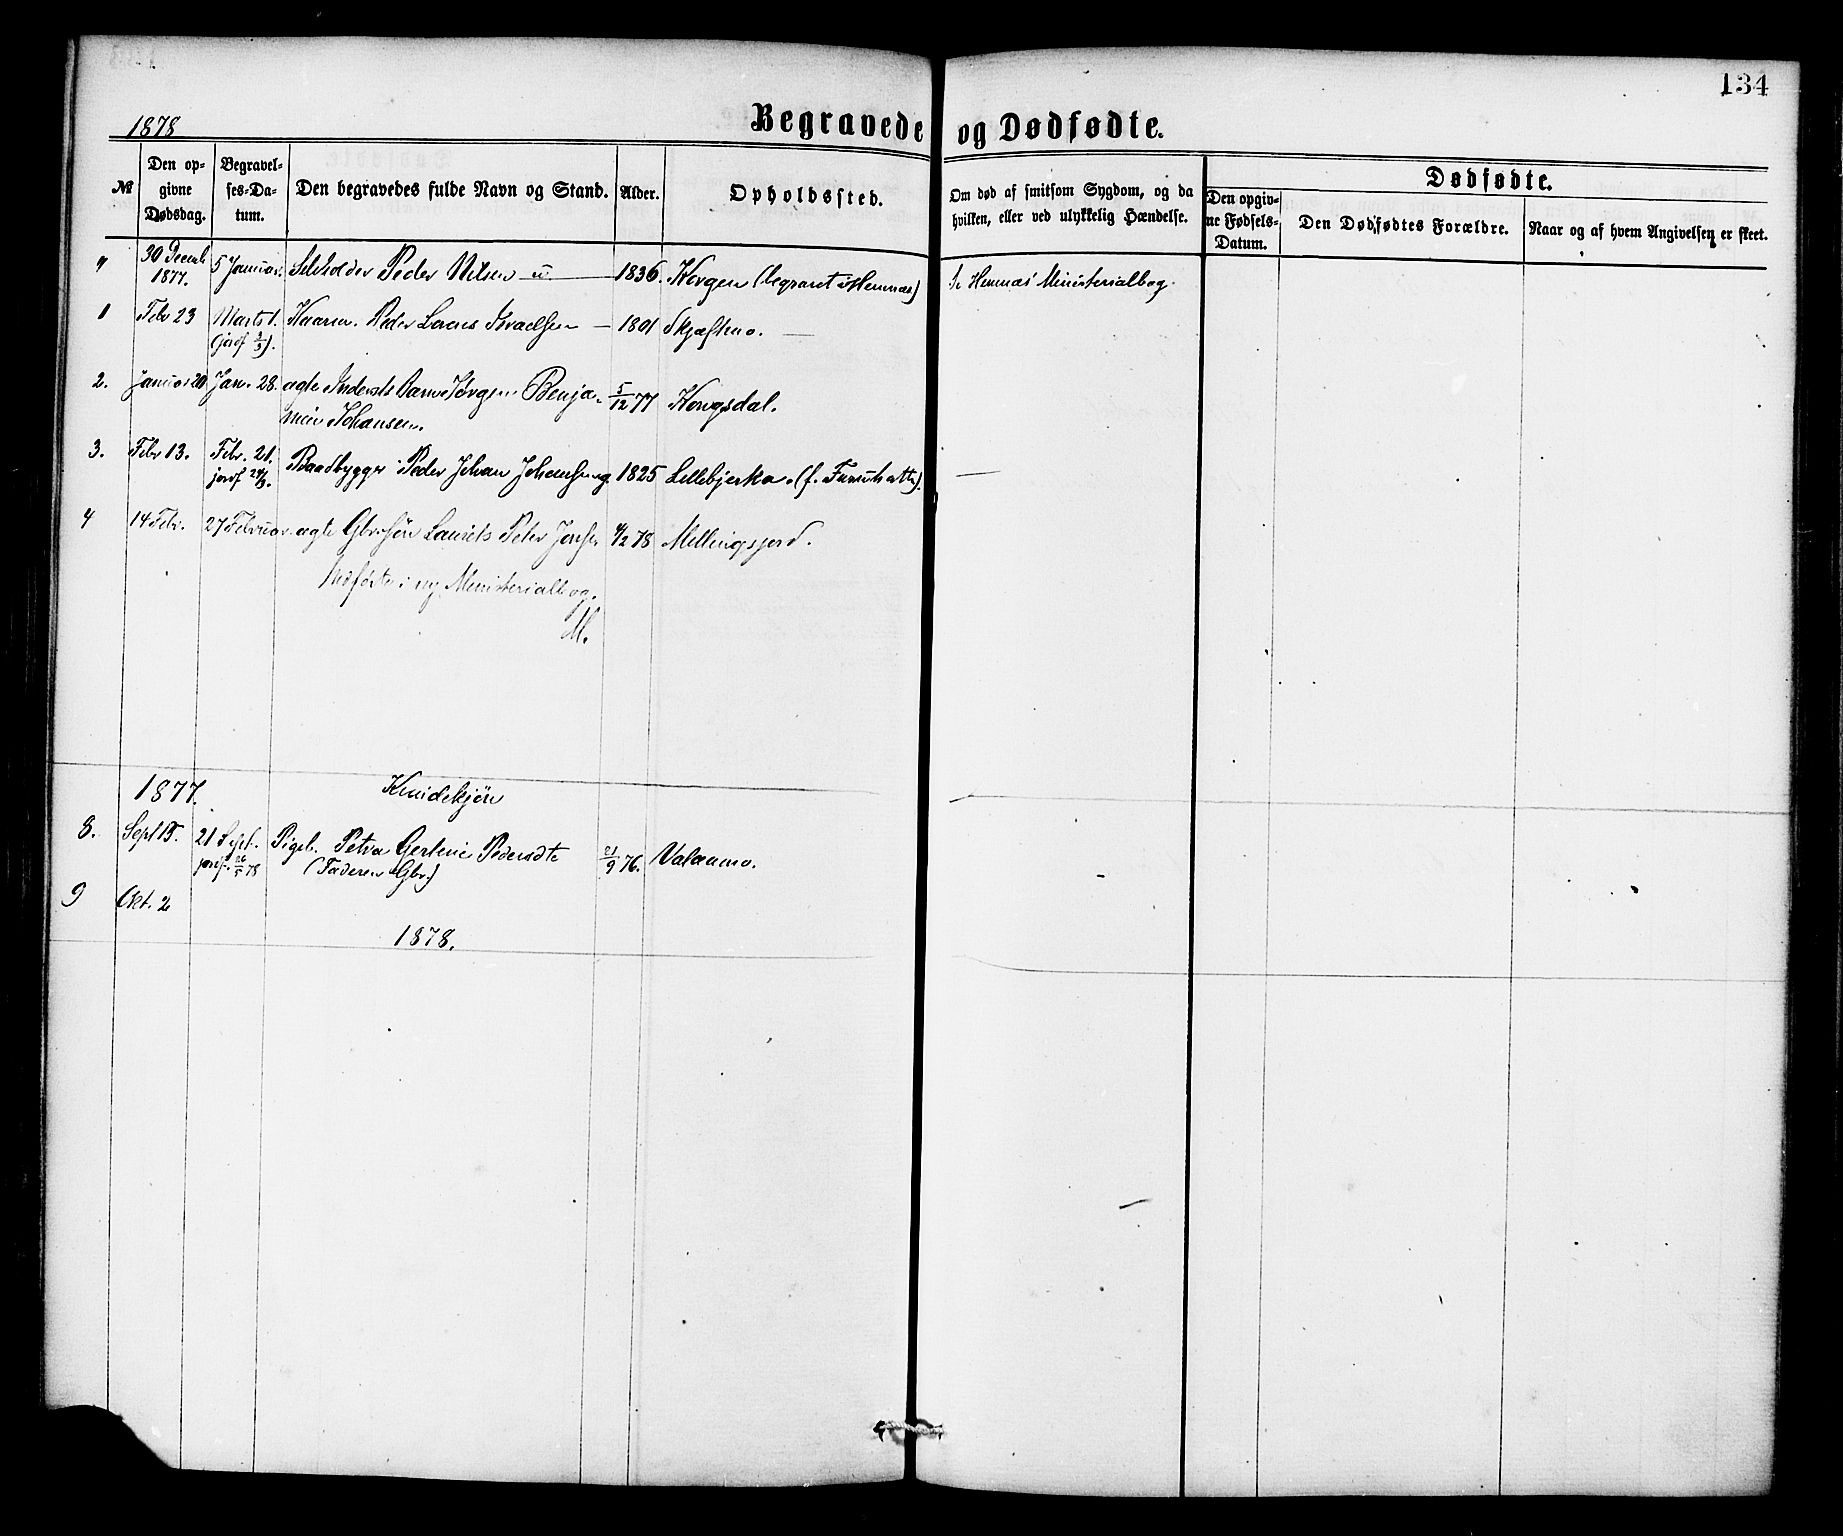 134
1878
Begravede og Dødfødte.
№
Den op-
givne
Dødsdag.
Begravel-
ses-Da-
tum.
Den begravedes fulde Navn og Stand.
Alder.
Opholdssted.
Om død af smitsom Sygdom, og da
hvilken, eller ved ulykkelig Hændelse.
Dødfødte.
Den opgiv-
ne Fødsels-
Datum.
Den Dødfødtes Forældre.
Naar og af hvem Angivelsen er skeet.
30 Decmb. 1877. 5 Januar. Peder Nilsen 1836. Korgen (begravet i Hemnæs) Hemnæs Ministerialbog.
1 Febr 23 Marts 1. Kaarm. Peder Lorens Israelsen 1801 Skjæfmo.
(jordf 3/3).
2. Januar 20 Jan. 28. ægte Inderste Barn Jørgen Benja- 5/12 77 Kongsdal.
min Johansen.
3. Febr 13. Febr. 21. Baadbygger Peder Johan 1825 Lillebjerka (f. )
jordf 24/3.
4 14 Febr. 27 Februar ægte Gbr.søn Laurits Peter 4/2 78 Mellingsjord.
Indført i ny Ministerialbog.
M.
1877. Kvindekjøn
8. Sept 15. 21 Sept. Pigeb. Petra Gertine Pedersdtr 21/9 76. Valaamo.
jordf. 26/5 78 (Faderen Gbr.)
9 Okt. 2
1878.